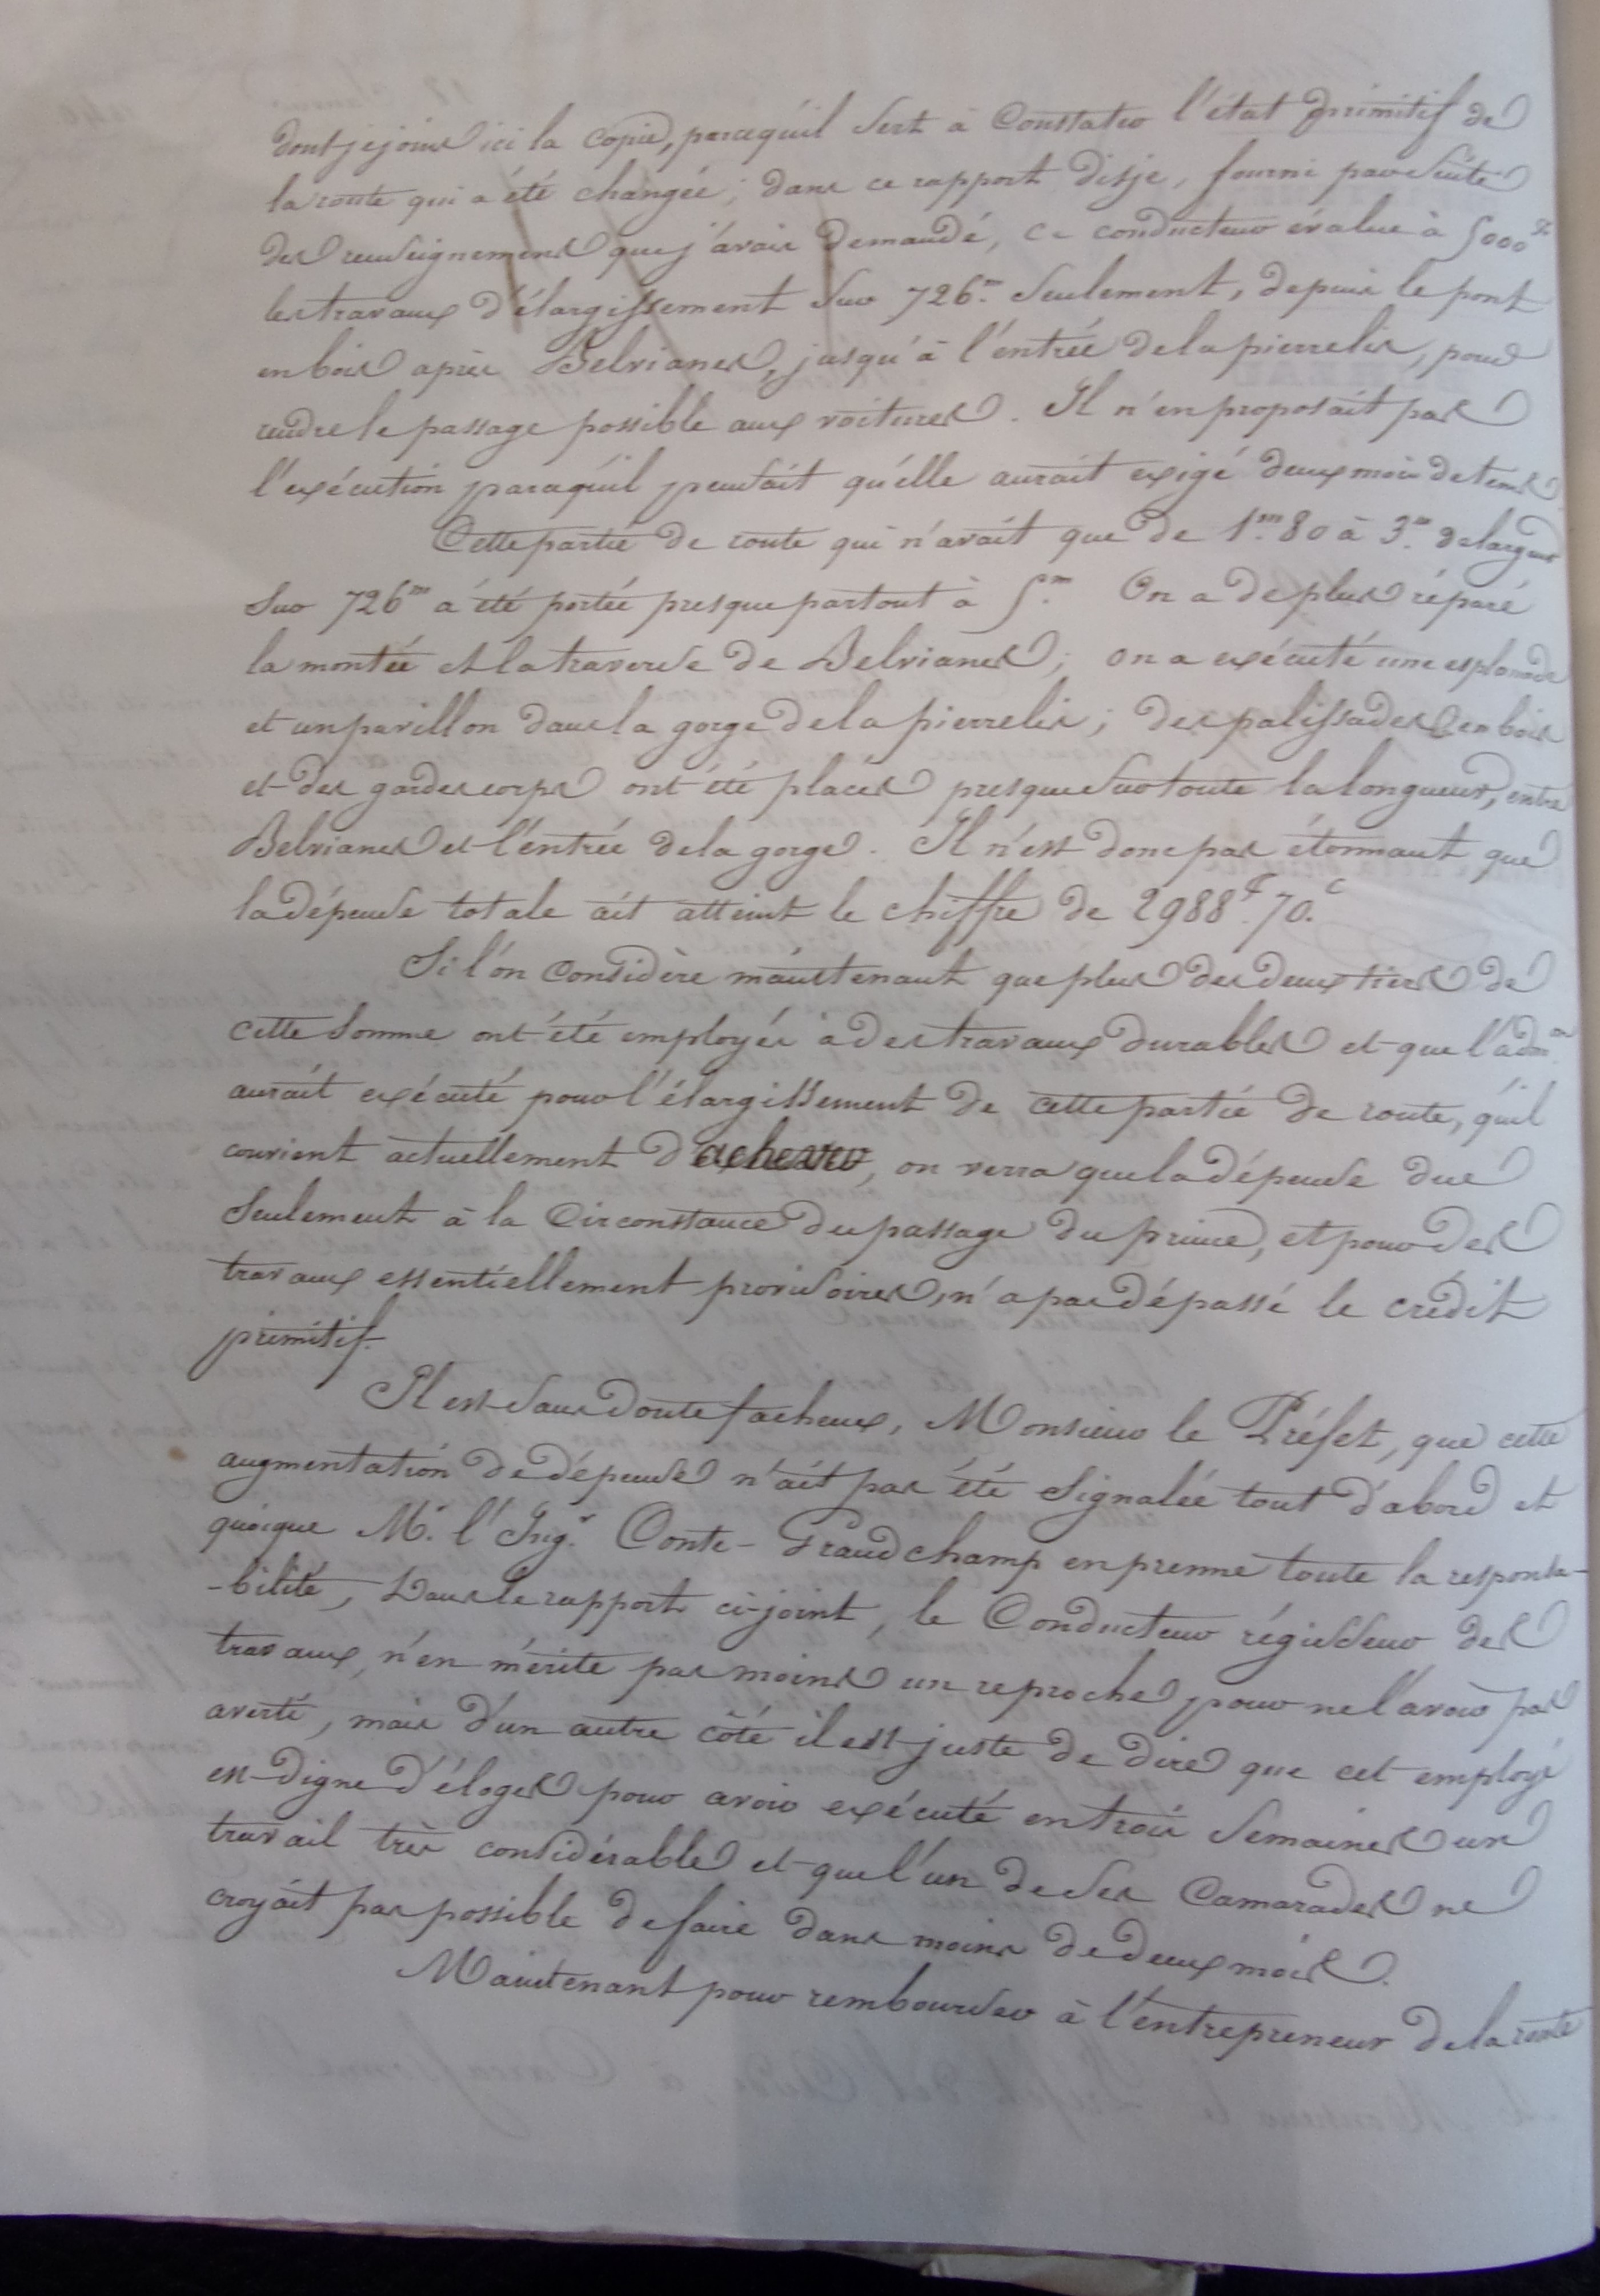 dont je joins ici la copie, parcequ'il sert à constater l'état primitif de
la route qui a été changée ; dans ce rapport disje, fourni par suite
des renseignemens que j'avais demandé, ce conducteur évalue à 5000f
les travaux d'élargissement sur 726m. seulement, depuis le pont
en bois après Belvianes, jusqu'à l'entrée de la pierrelis, pour
rendre le passage possible aux voitures. Il n'en proposait pas
l'exécution parcequ'il pensait qu'elle aurait exigé deux mois de tems.
Cette partie de route qui n'avait que de 1m.80 à 3m. de largeur
sur 726m a été portée presque partout à 5m. On a de plus réparé
la montée et la traverse de Belvianes ; on a exécuté une esplanade
et un pavillon dans la gorge de la pierrelis ; des palissades en bois
et des gardecorps ont été placés presque sur toute la longueur, entre
Belvianes et l'entrée de la gorge. Il n'est donc pas étonnant que
la dépense totale ait atteint le chiffre de 2988f.70.c
Si l'on considère maintenant que plus des deux tiers de
cette somme ont été employés à des travaux durables et que l'adm.on
aurait exécuté pour l'élargissement de cette partie de route, qu'il
convient actuellement d'achever, on verra que la dépense due
seulement à la circonstance du passage du prince, et pour des
travaux essentiellement provisoires, n'a pas dépassé le crédit
primitif.
Il est sans doute facheux, Monsieur le Préfet, que cette
augmentation de dépense n'ait pas été signalée tout d'abord et
quoique Mr. l'Ing.r Conte-Grandchamp en prenne toute la responsa-
-bilité, dans le rapport ci-joint, le Conducteur régisseur des
travaux, n'en mérite pas moins un reproche, pour ne l'avoir pas
averti, mais d'un autre côté il est juste de dire que cet employé
est digne d'éloges pour avoir exécuté en trois semaines un
travail très considérable et que l'un de ses camarades ne
croyait pas possible de faire dans moins de deux mois.
Maintenant pour rembourser à l'entrepreneur de la route